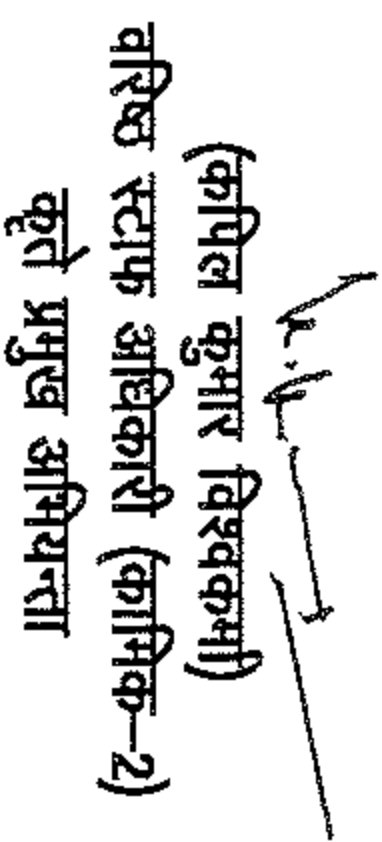 (कपिल कुमार विश्वकर्मा)
वरिष्ठ स्टाफ अधिकारी (कार्मिक-2)
कृते प्रमुख अभियन्ता